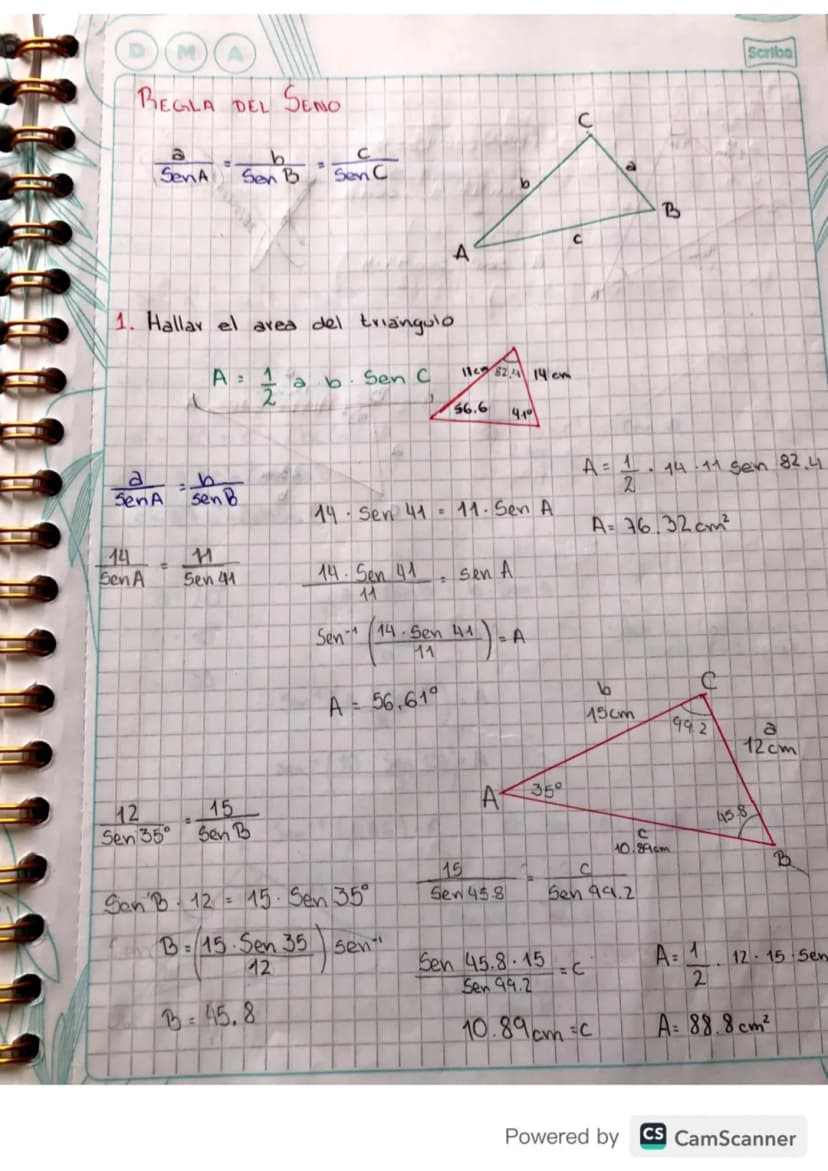 D M A
Scribe
REGLA DEL SENO
a/SenA = b/Sen B = c/Sen C
C
b
a
B
A
c
1. Hallar el area del triángulo
A = 1/2 a b . Sen C
11cm 82,4 14 cm
56.6 41º
a/SenA = b/senB
A = 1/2 . 14 . 11 sen 82,4
14 . Sen 41 = 11 . Sen A
A = 76.32 cm²
14/SenA = 11/Sen 41
14. Sen 41/11 = sen A
Sen⁻¹ (14 . Sen 41/11) = A
A = 56,61º
b
15cm
C
99.2
a
12cm
A
35º
45.8
c
10.89cm
B
12/Sen 35º = 15/Sen B
15/Sen 45.8 = c/Sen 99.2
Sen B . 12 = 15 . Sen 35º
B = (15 . Sen 35/12) sen⁻¹
Sen 45.8 . 15/Sen 99.2 = C
A = 1/2 . 12 . 15 . Sen
B = 45,8
10.89cm = C
A = 88.8 cm²
Powered by CS CamScanner